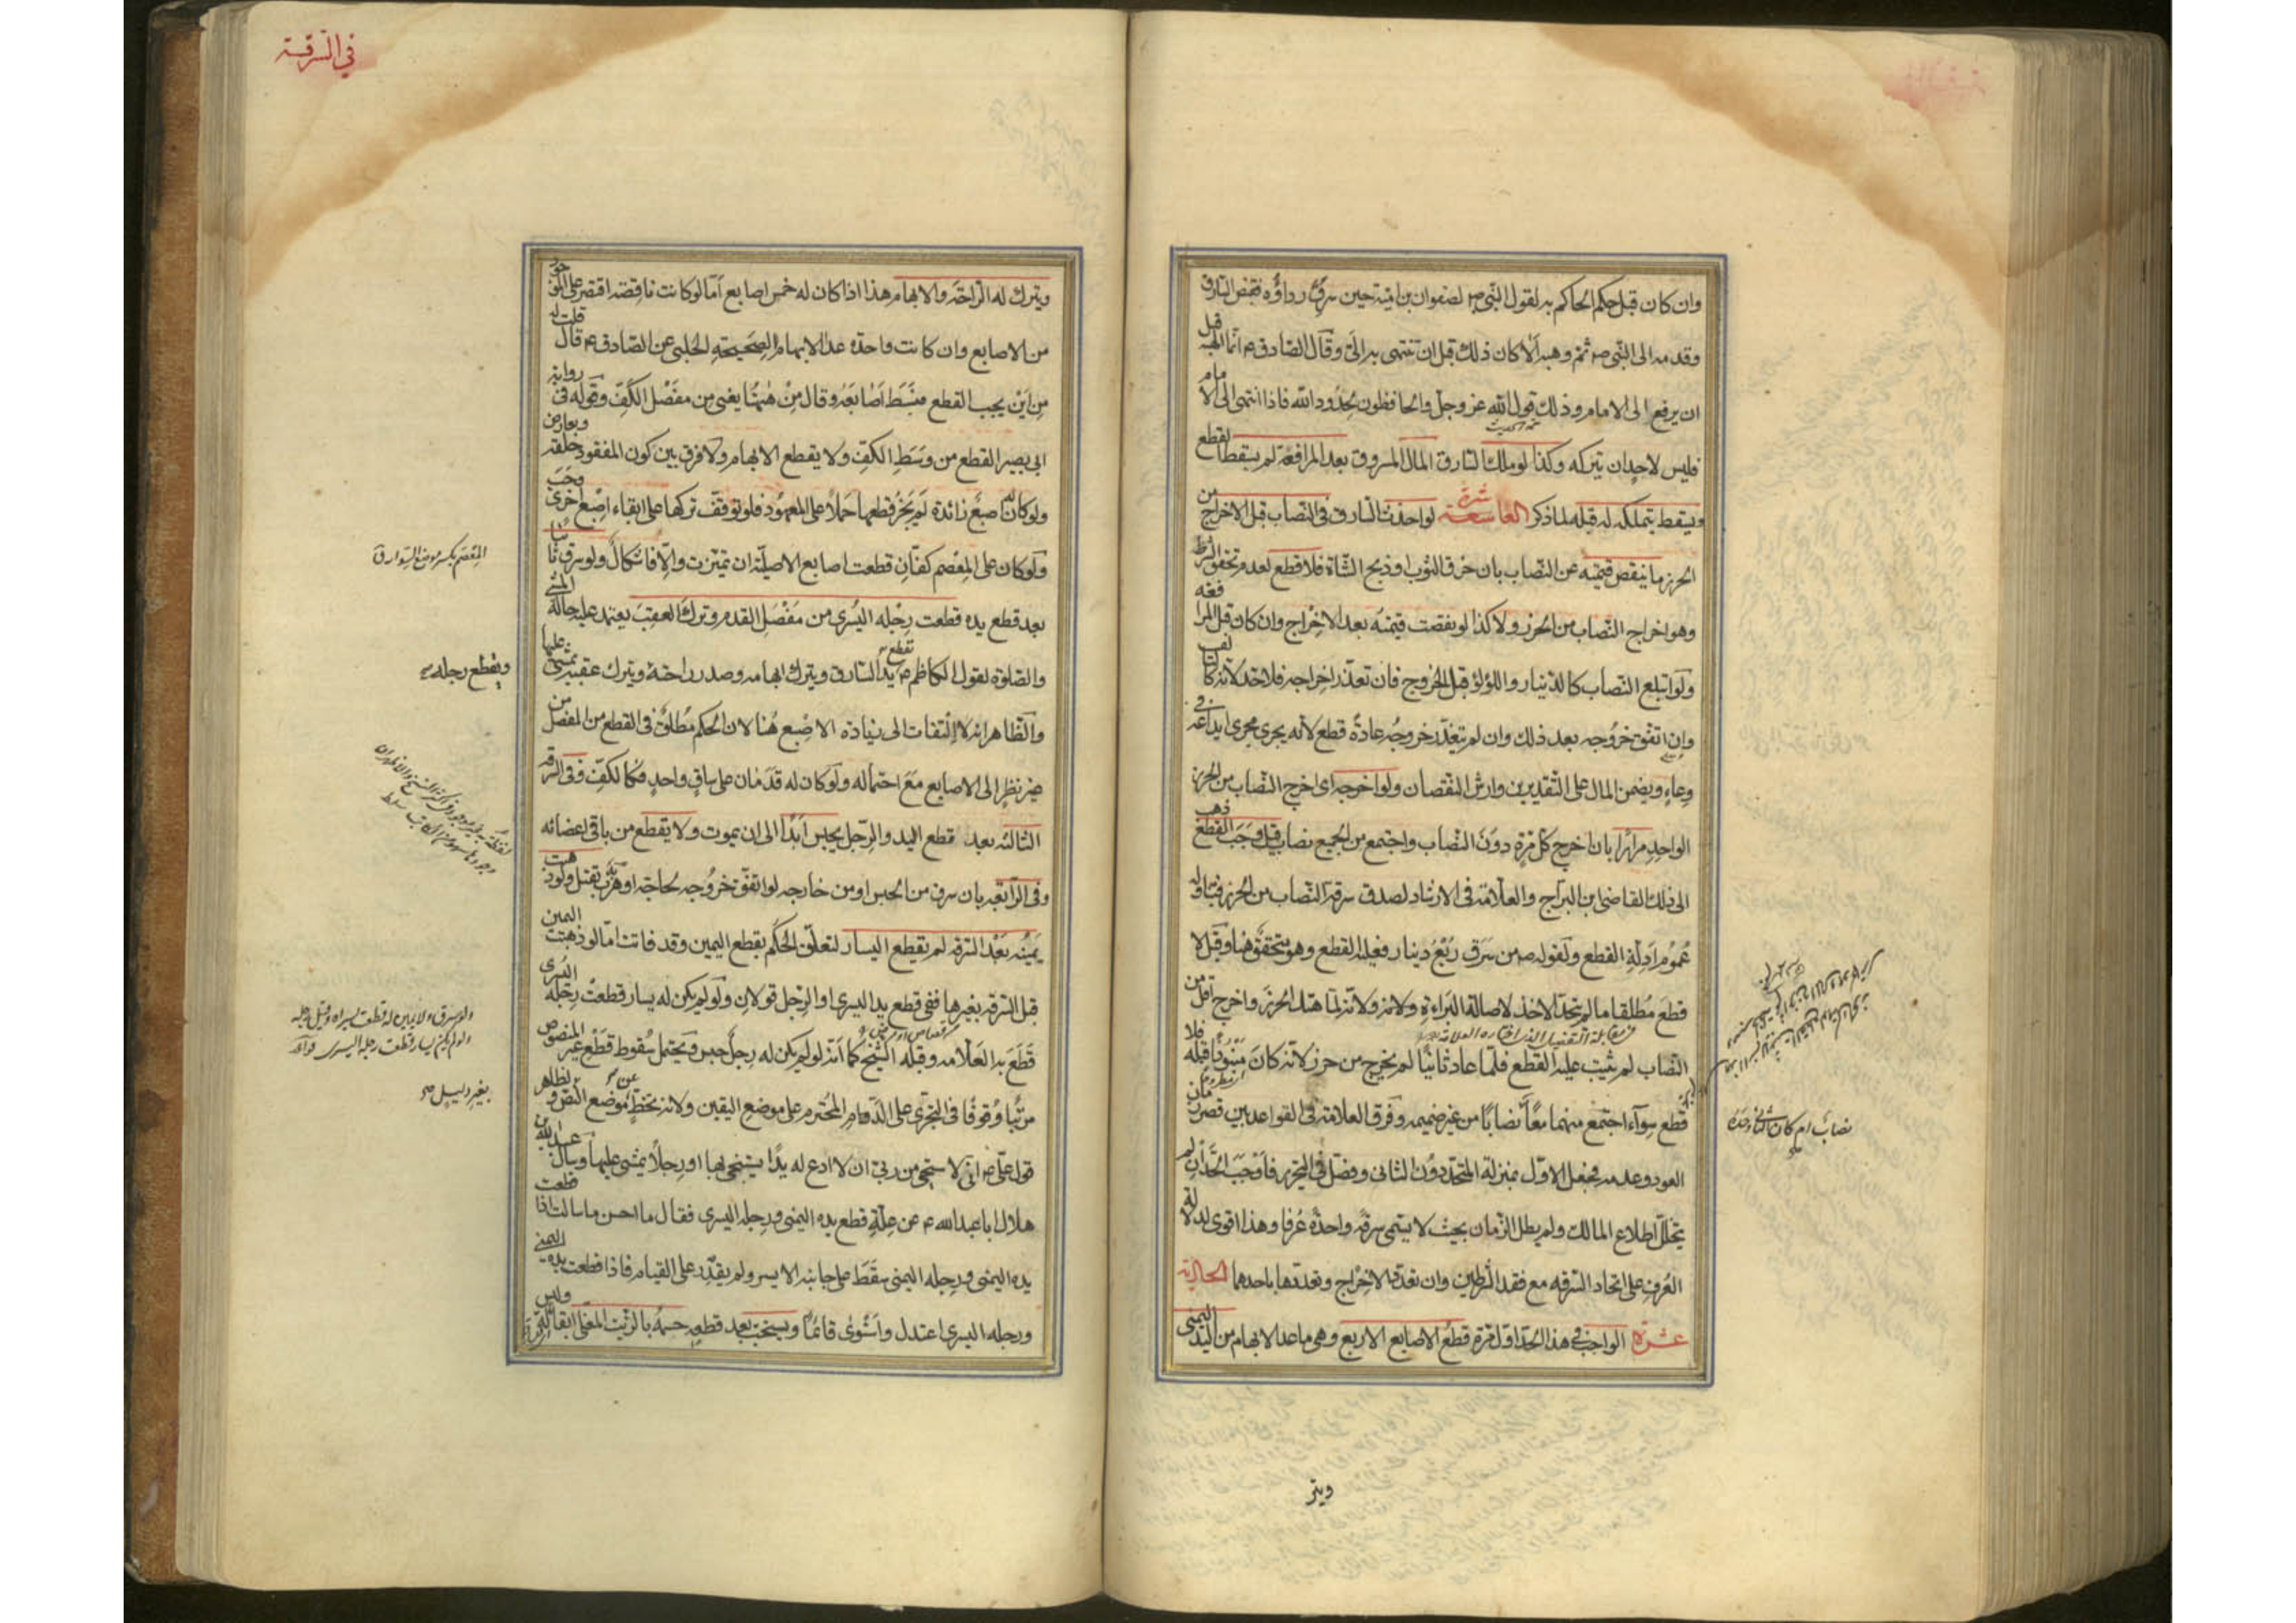 وان كان قبل حكم الحاكم به لقول النبى ص لصفوان بن امية حين سرق رداؤه فقبض السارق
وقدمه الى النبى ص ثم وهبه الا كان ذلك قبل ان تنتهى به الىّ وقال الصادق ع انما الهبة قبل
ان يرفع الى الامام وذلك قول الله عز وجل والحافظون لحدود الله فاذا انتهى الى الامام
فليس لاحد ان يتركه وكذا لو ملك السارق المال المسروق بعد المرافعة لم يسقط القطع
ويسقط بتملكه له قبله لما ذكر العاشرة لو احدث السارق فى النصاب قبل الاخراج من
الحرز ما ينقص قيمته عن النصاب بان خرق الثوب او ذبح الشاة فلا قطع لعدم تحقق الشرط
وهو اخراج النصاب من الحرز ولا كذا لو نقصت قيمته بعد الاخراج وان كان قبل المرافعة
ولو ابتلع النصاب كالدينار واللؤلؤ قبل الخروج فان تعذر اخراجه فلا حد لانه كالتالف
وان اتفق خروجه بعد ذلك وان لم يتعذر خروجه عادة قطع لانه يجرى مجرى ايداعه فى
وعاء ويضمن المال على التقديرين وارش النقصان ولو اخرجه اى اخرج النصاب من الحرز
الواحد مرارا بان اخرج كل مرة دون النصاب واجتمع من الجميع نصاب قيل وجب القطع ذهب
الى ذلك القاضى ابن البراج والعلامة فى الارشاد لصدق سرقة النصاب من الحرز فيتناوله
عموم ادلة القطع ولقوله ص من سرق ربع دينار فعليه القطع وهو متحقق هنا وقيل لا
قطع مطلقا ما لم يتحد الاخذ لاصالة البراءة ولانه لما هتك الحرز واخرج اقل من
النصاب لم يثبت عليه القطع فلما عاد ثانيا لم يخرج من حرز لانه كان منتوكا قبله فلا
قطع سواء اجتمع منهما معا نصابا من غير ضميمة وفرق العلامة فى القواعد بين قصر زمان
العود وعدمه فجعل الاول بمنزلة المتحد دون الثانى وفصل فى التحرير فاوجب الحد ان لم
يتخلل اطلاع المالك ولم يطل الزمان بحيث لا يتمى سرقة واحدة عرفا وهذا اقوى لدلالة
العرف على اتحاد السرقة مع فقد الشرطين وان تعدد الاخراج وتعددها باحدهما الحادية
عشرة الواجب فى هذا الحد اول مرة قطع الاصابع الاربع وهى ما عدا الابهام من اليد اليمنى
نصاب ام كان الثانى وحده
ويتر
فى السرقة
ويترك له الراحة والابهام هذا اذا كان له خمس اصابع اما لو كانت ناقصة اقتصر على الموجود
من الاصابع وان كانت واحدة عدا الابهام لصحيحة الحلبى عن الصادق ع قال قلت له
من اين يجب القطع فبسط اصابعه وقال من هيهنا يعنى من مفصل الكف وقوله فى رواية
ابى بصير القطع من وسط الكف ولا يقطع الابهام ولا فرق بين كون المفقود خلقة وبعارض
ولو كان له اصبع زائدة لم يجز قطعها حملا على المعهود فلو توقف تركها على ابقاء اصبع اخرى وجب
ولو كان على المعصم كفان قطعت اصابع الاصلية ان تميزت والا فاشكال ولو سرق ثانيا
بعد قطع يده قطعت رجله اليسرى من مفصل القدم وترك العقب يعتمد عليه حالة المشى
والصلوة لقول الكاظم ع تقطع يد السارق ويترك ابهامه وصدر راحته ويترك عقبه يمشى عليها
والظاهر انه لا التفات الى زيادة الاصبع هنا لان الحكم مطلق فى القطع من المفصل من
غير نظر الى الاصابع مع احتماله ولو كان له قدمان على ساق واحد فكالكف وفى السرقة
الثالثة بعد قطع اليد والرجل يحبس ابدا الى ان يموت ولا يقطع من باقى اعضائه
وفى الرابعة بان سرق من الحبس او من خارجه لو اتفق خروجه لحاجة او هرب به يقتل ولو ذهبت
يمينه بعد السرقة لم يقطع اليسار لتعلق الحكم بقطع اليمين وقد فاتت اما لو ذهبت اليمين
قبل السرقة بغيرها ففى قطع يد اليسرى او الرجل قولان ولو لم يكن له يسار قطعت رجله اليسرى
قطع به العلامه وقبله الشيخ كما انه لو لم يكن له رجل حبس ويحتمل سقوط قطع غير المنصوص
مرتبا وقوفا فى التجرى على الدم المحترم على موضع اليقين ولانه تخط عن موضع النص ولظاهر
قول على ع انى لاستحيى من ربى ان لا ادع له يدا يستنجى بها او رجلا يمشى عليها وسأل عبد الله بن
هلال ابا عبد الله ع عن علة قطع يده اليمنى ورجله اليسرى فقال ما احسن ما سالت اذا قطعت
يده اليمنى ورجله اليمنى سقط على جانبه الايسر ولم يقدر على القيام فاذا قطعت يده اليمنى
ورجله اليسرى اعتدل واستوى قائما ويستحب بعد قطعه حسمه بالزيت المغلى ابقاء له وليس
المعصم بكسر موضع السوار ق
ويقطع رجله
ولو سرق ولا يمين له قطعت يسراه وقيل رجله
ولو لم يكن يسار قطعت رجله اليسرى قواعد
بغير دليل صح